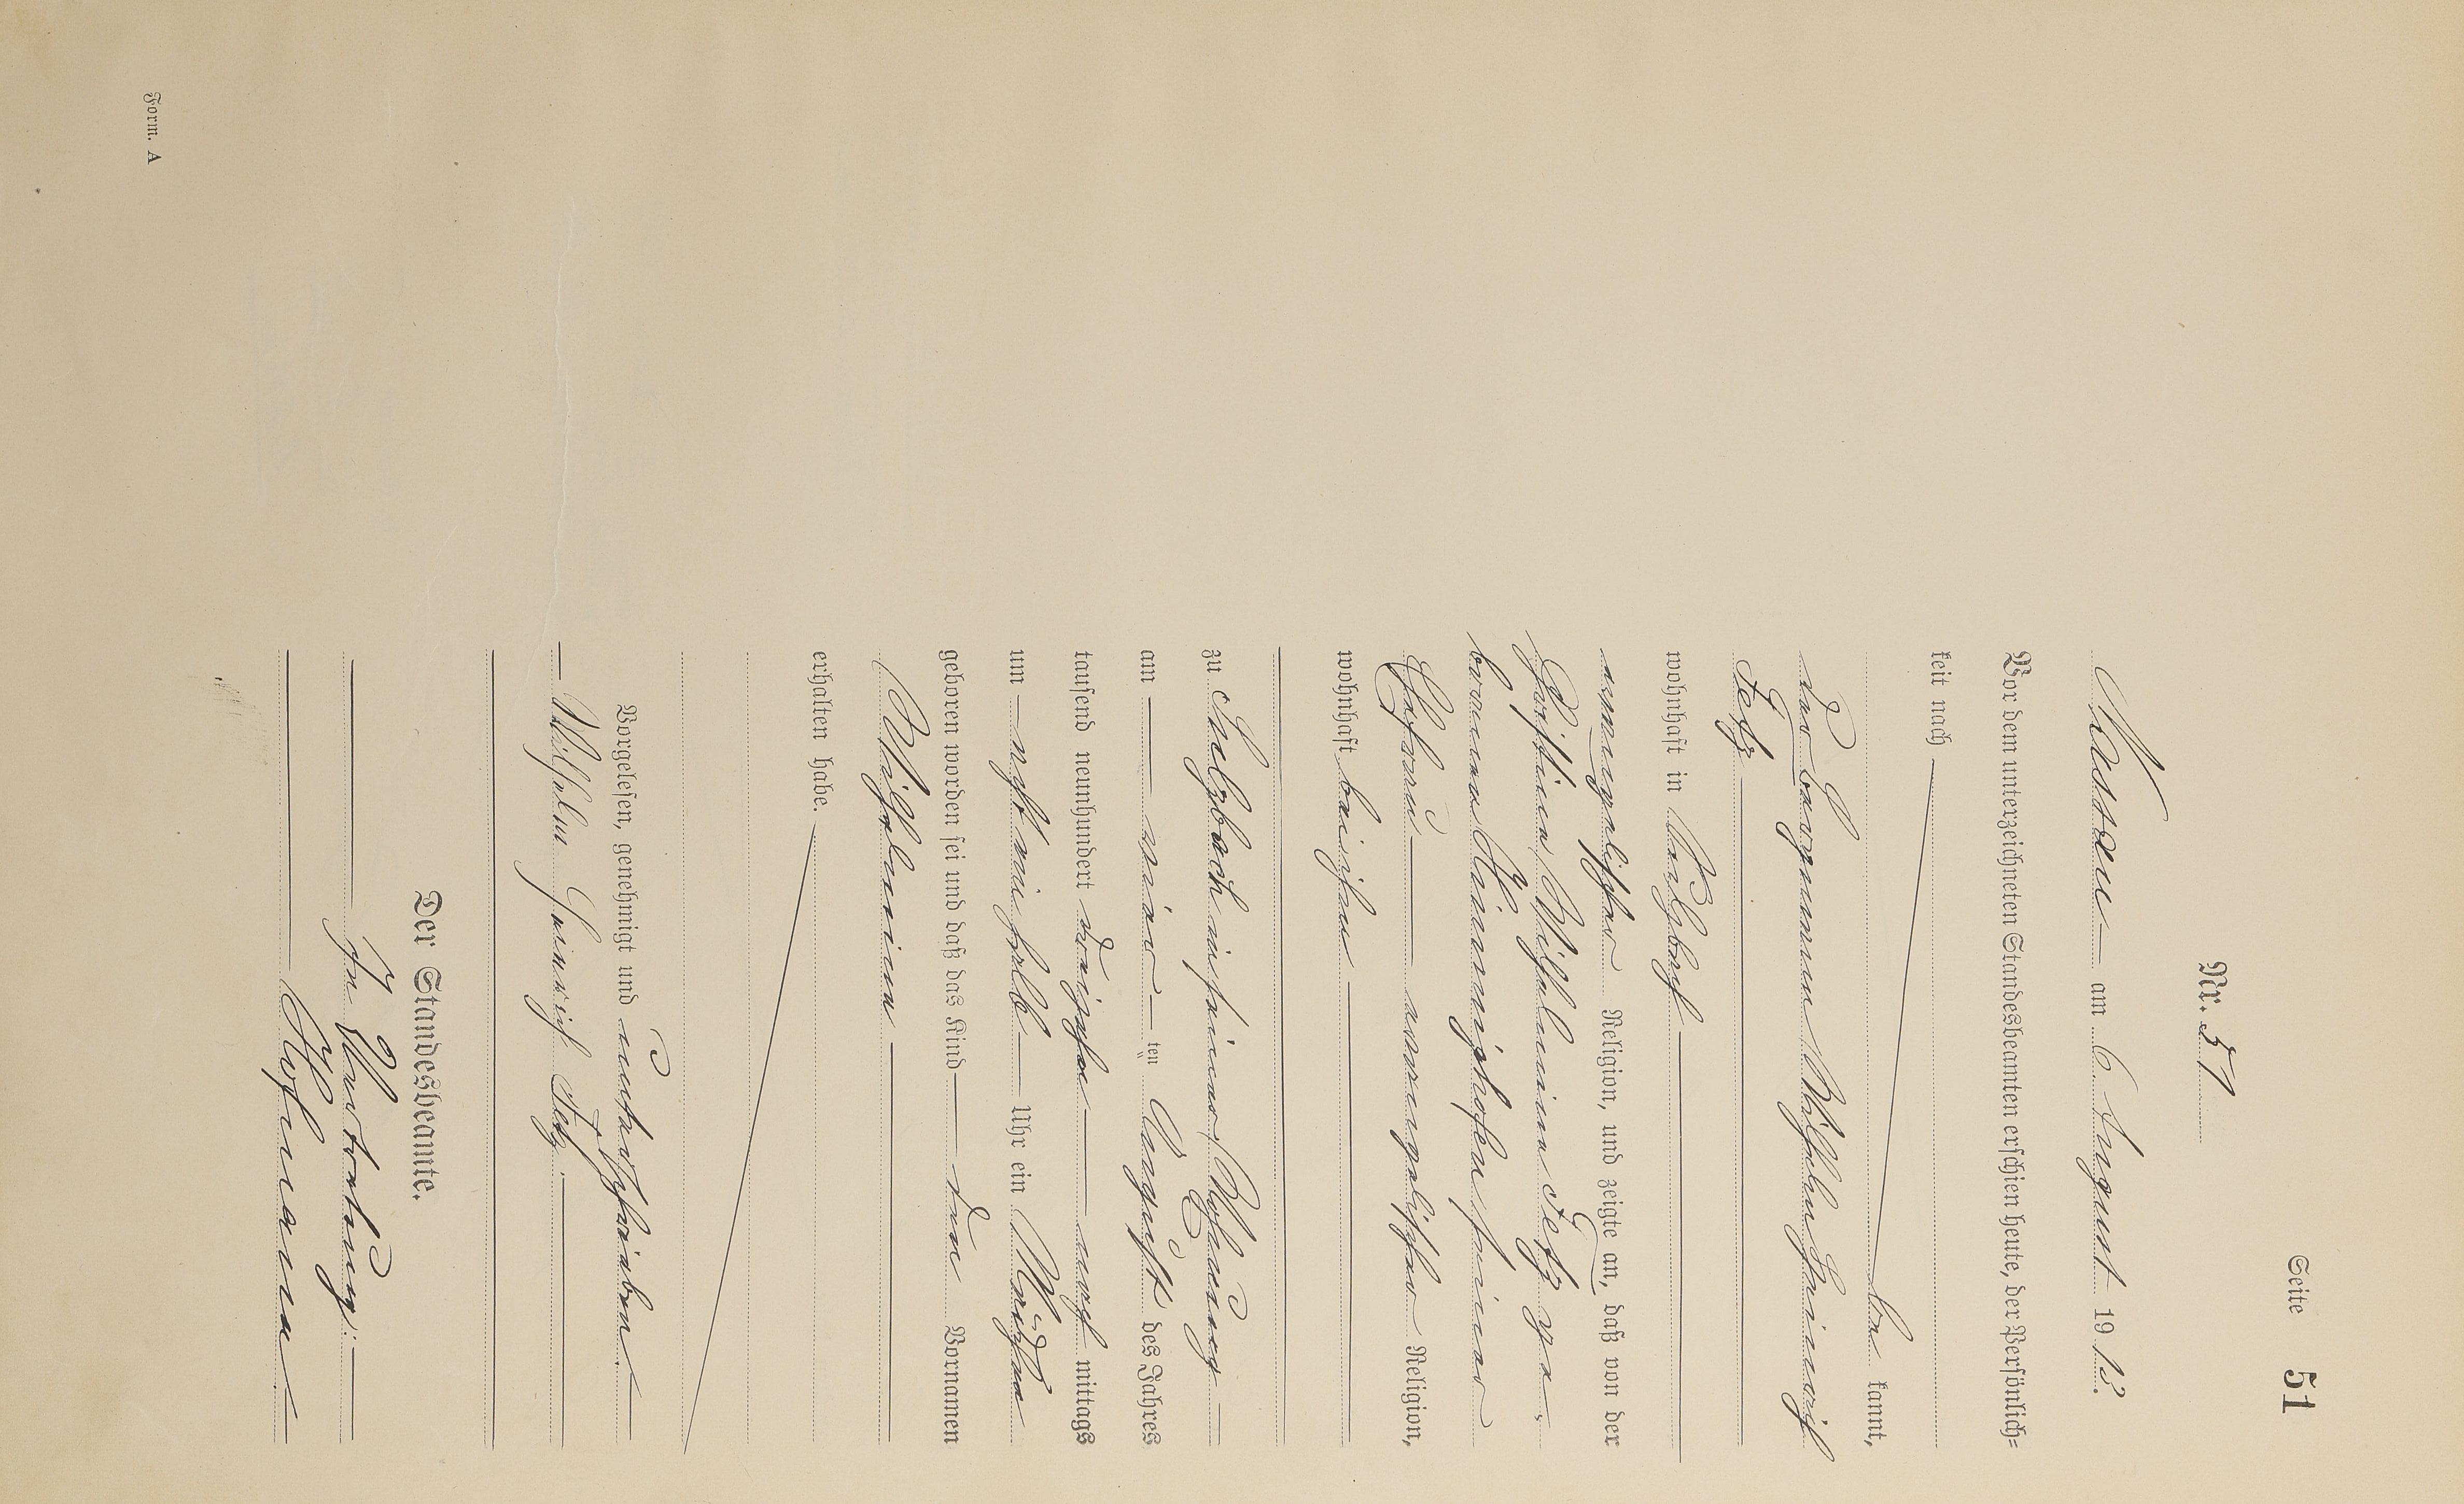 Seite 51
Nr. 51
Nassau am 6. August 1913.
Vor dem unterzeichneten Standesbeamten erschien heute, der Persönlich-
keit nach
be kannt,
der Bergmann Wilhelm Heinrich
Fetz
wohnhaft in Sulzbach
evangelischer Religion, und zeigte an, daß von der
Christine Wilhelmine Fetz ge-
borenen seiner
Ehefrau evangelischer Religion,
wohnhaft bei ihm
zu Sulzbach in seiner Wohnung
am vier ten August des Jahres
tausend neunhundert dreizehn nach mittags
um acht ein halb Uhr ein Mädchen
geboren worden sei und daß das Kind den Vornamen
Wilhelmine
erhalten habe.
Vorgelesen, genehmigt und unterschrieben
Wilhelm Heinrich Fetz.
Der Standesbeamte.
In Vertretung:
Form. A